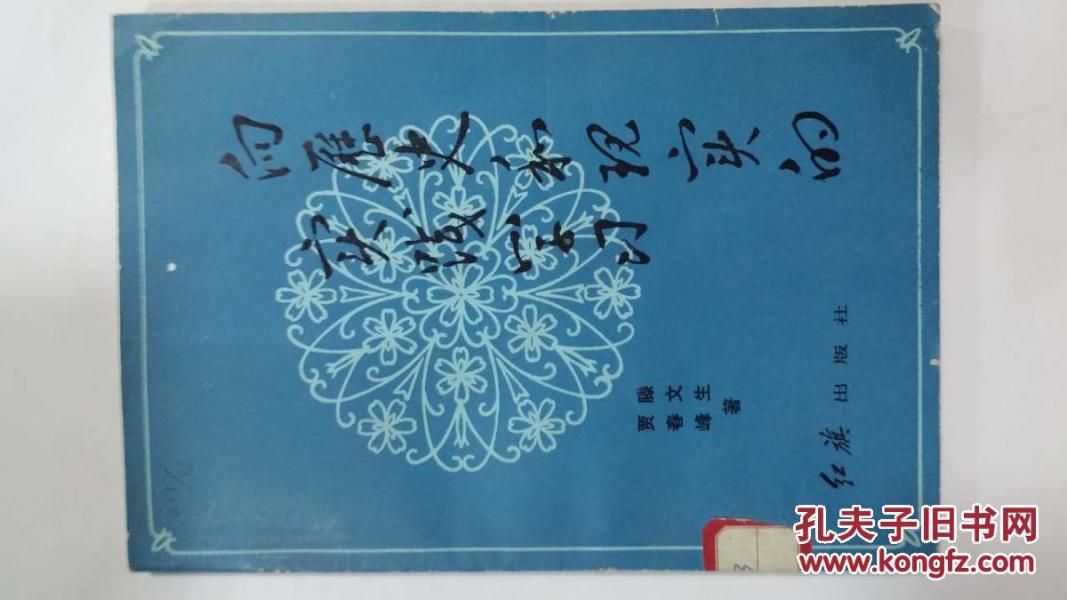 向历史和现实的
实践学习
滕文生
贾春峰
著
红旗出版社
3
孔夫子旧书网
www.kongfz.com